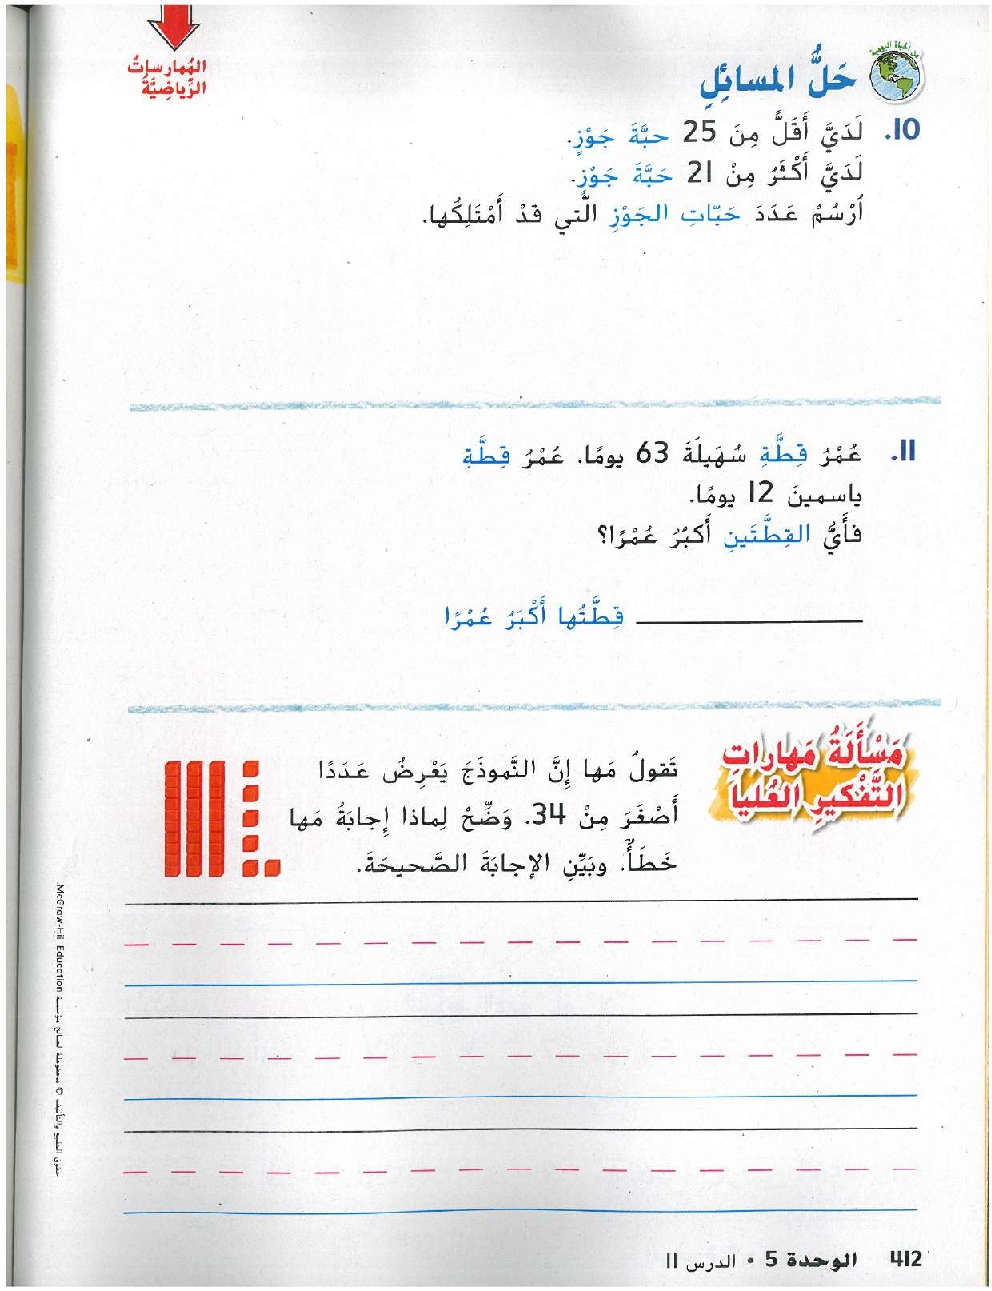 المُمارساتُ
الرِّياضِيَّةُ
حَلُّ المَسائِلِ
10. لَدَيَّ أَقَلُّ مِنَ 25 حبَّةَ جَوْزٍ.
لَدَيَّ أَكْثَرُ مِنْ 21 حَبَّةَ جَوْزٍ.
اُرْسُمْ عَدَدَ حَبّاتِ الجَوْزِ الَّتي قَدْ أَمْتَلِكُها.
11. عُمْرُ قِطَّةِ سُهَيلَةَ 63 يومًا. عُمْرُ قِطَّةِ
ياسمينَ 12 يومًا.
فأَيُّ القِطَّتَينِ أَكبُرُ عُمْرًا؟
قِطَّتُها أَكْبَرُ عُمْرًا
مَسْأَلَةُ مَهاراتِ
التَّفْكيرِ العُليا
تَقولُ مَها إِنَّ النَّموذَجَ يَعْرِضُ عَدَدًا
أَصْغَرَ مِنْ 34. وَضِّحْ لِماذا إِجابَةُ مَها
خَطَأٌ. وبَيِّنِ الإجابَةَ الصَّحيحَةَ.
حقوق الطبع والتأليف © محفوظة لصالح مؤسسة McGraw-Hill Education
412 الوحدة 5 • الدرس 11